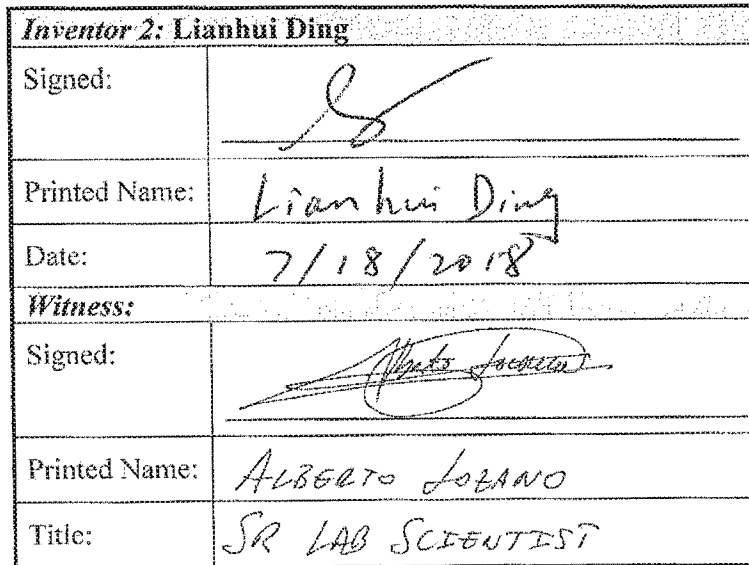 Inventor 2: Lianhui Ding
Signed:
Printed Name: Lianhui Ding
Date: 7/18/2018
Witness:
Signed: Alberto Lozano
Printed Name: ALBERTO LOZANO
Title: SR LAB SCIENTIST